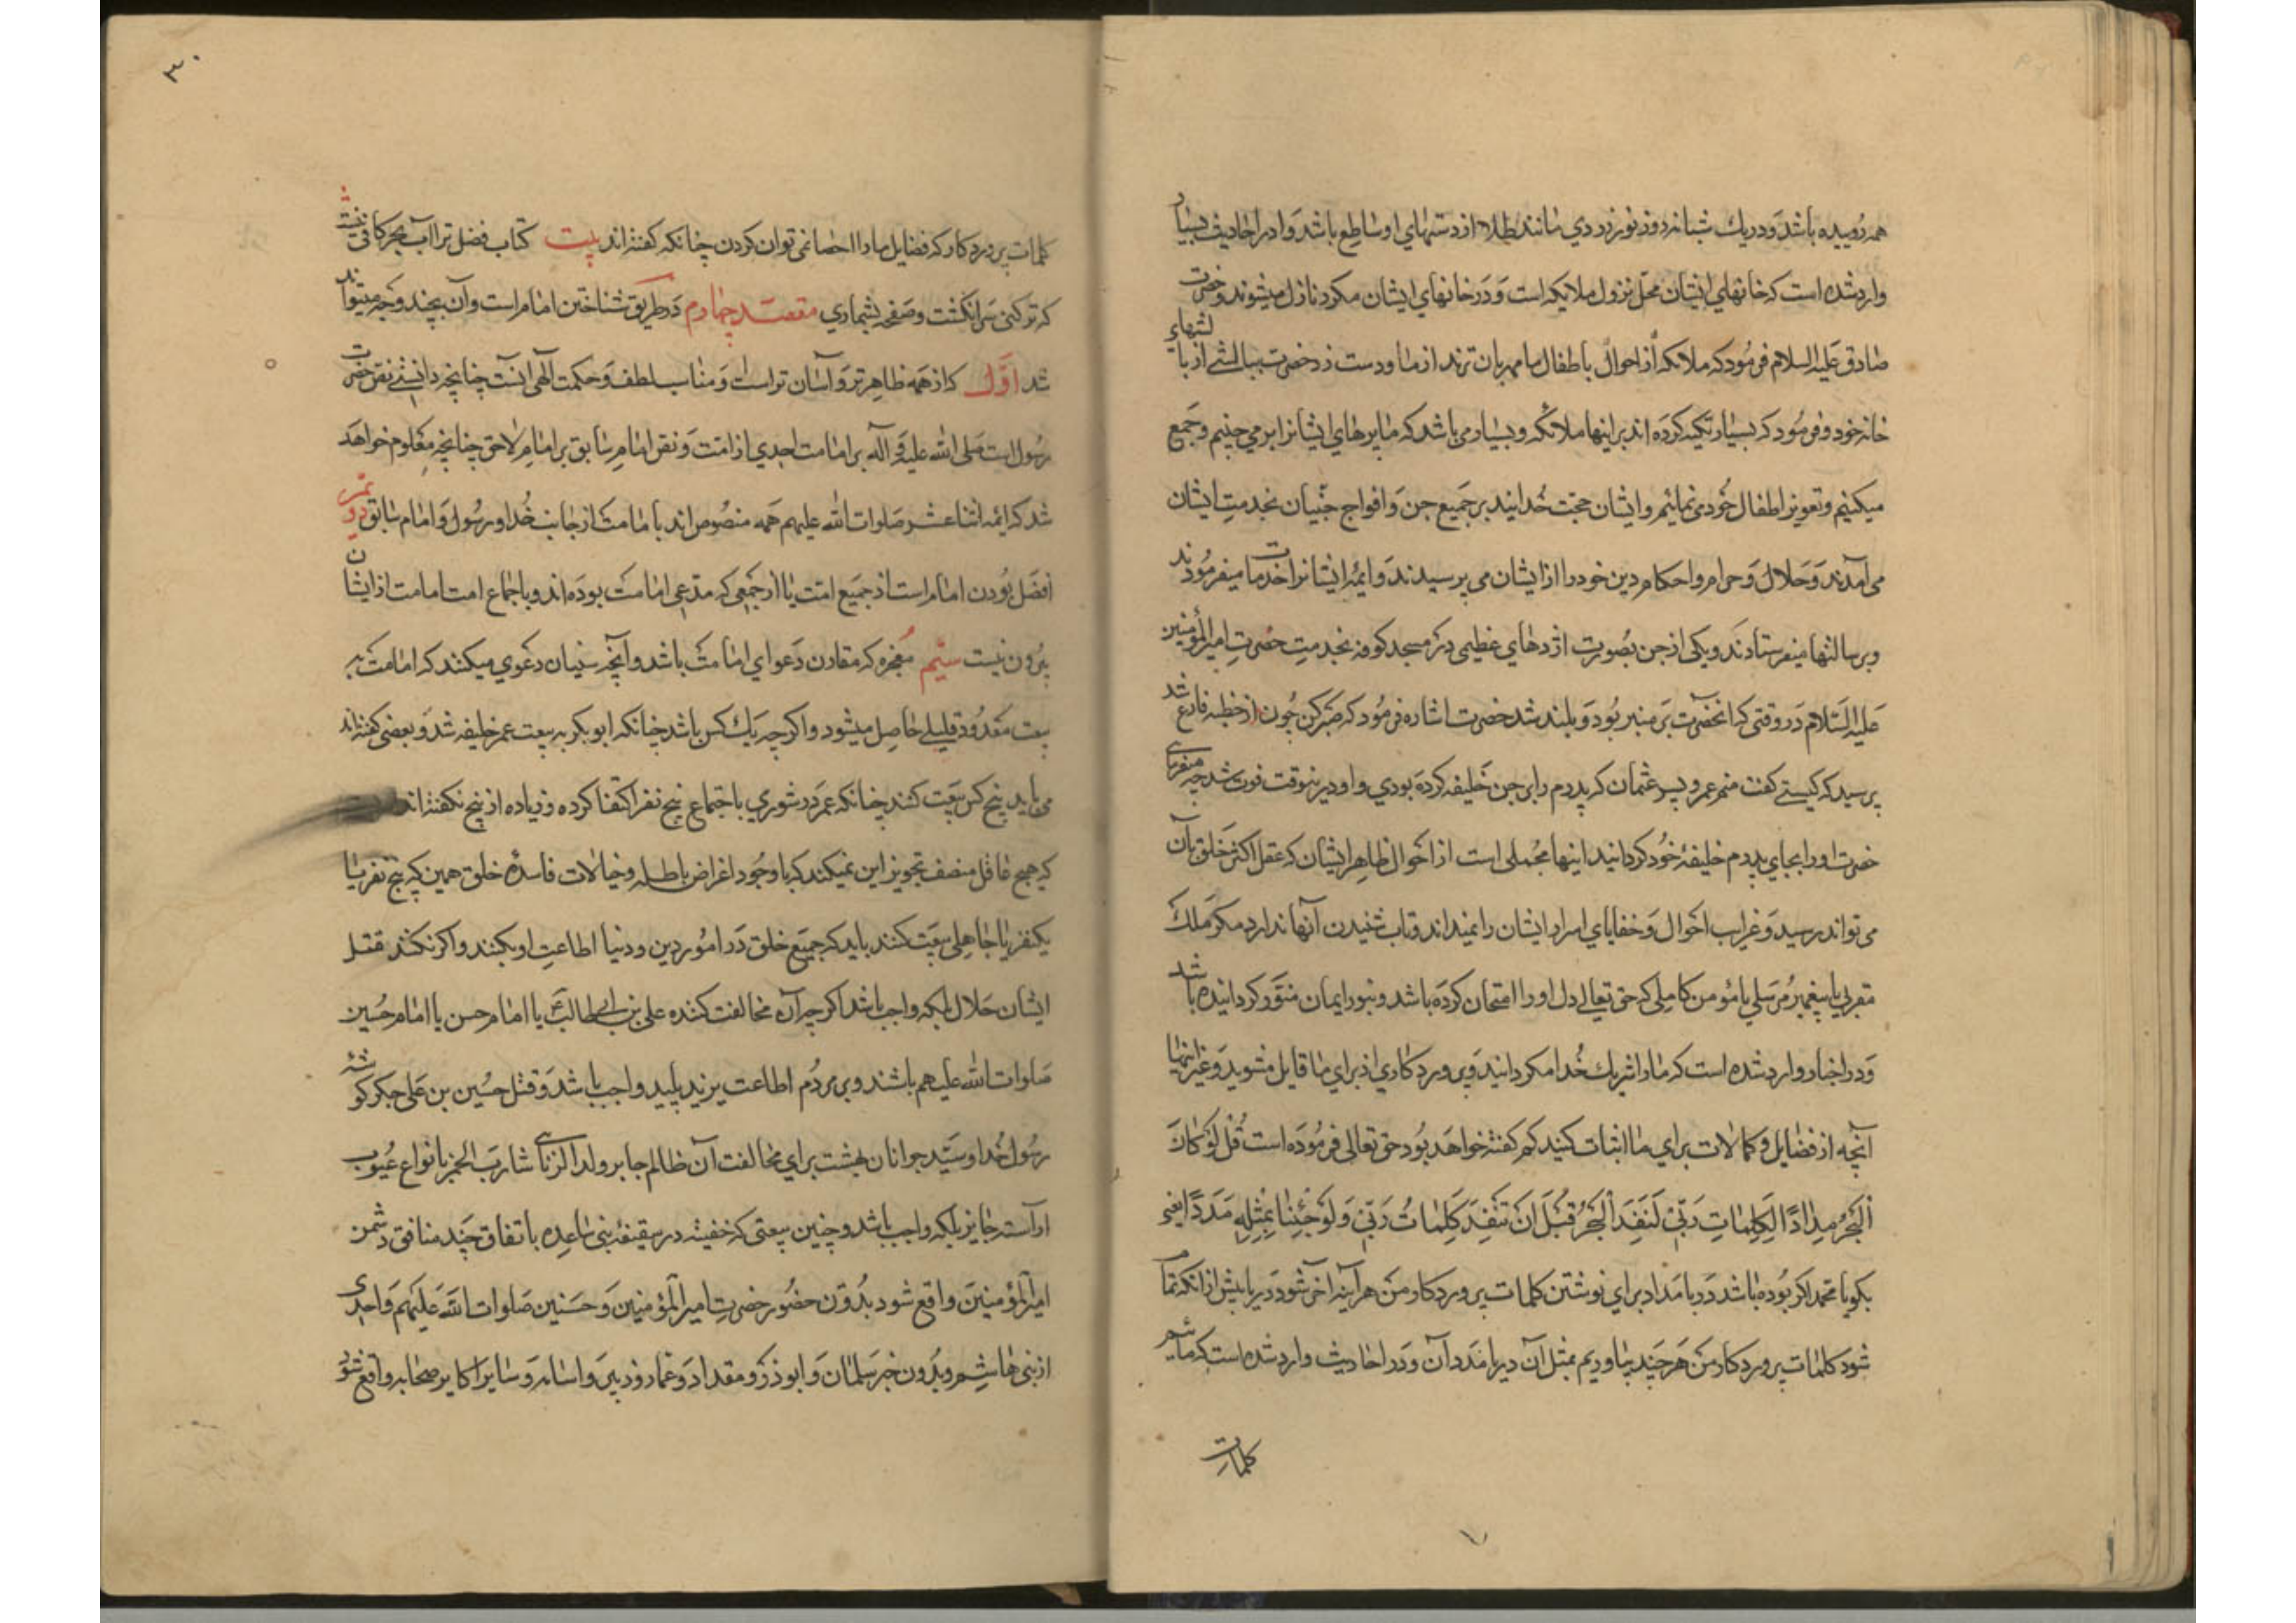 همه روییده باشد و در یك شبانه روز نور زردی مانند طلا از دستهای او ساطع باشد و در احادیث بسیار
وارد شده است که خانهای ایشان محل نزول ملایکه است و در خانهای ایشان مکرر نازل میشوند و حضرت
صادق علیه السلام فرمود که ملائکه از احوال باطفال ما مهربان ترند از ما و دست زد حضرت ببالشی از بالشهای
خانه خود و فرمود که بسیار تکیه کرده اند بر اینها ملائکه و بسیار می باشد که ما پرهای ایشانرا بر می چنیم و جمع
میکنیم و تعویذ اطفال خود می نمائیم و ایشان حجت خدایند بر جمیع جن و افواج جنیان بخدمت ایشان
می آمدند و حلال و حرام و احکام دین خود را از ایشان می پرسیدند و ائمه ایشانرا خدمات میفرمودند
و برسالتها میفرستادند و یکی از جن بصورت اژدهای عظیمی در مسجد کوفه بخدمت حضرت امیرالمؤمنین
علیه السلام در وقتی که انحضرت بر منبر بود و بلند شد حضرت اشاره فرمود که صبر کن چون از خطبه فارغ شد
پرسید که کیستی گفت منم عمرو پسر عثمان که پدرم را بر جن خلیفه کرده بودی و او درینوقت فوت شد چه میفرمای
حضرت او را بجای پدرم خلیفهٔ خود گردانید اینها مجملی است از احوال ظاهر ایشان که عقل اکثر خلق بآن
می تواند رسید و غرایب احوال و خفایای اسرار ایشان را نمیداند و تاب شنیدن آنها ندارد مگر ملك
مقربی یا پیغمبر مرسلی یا مؤمن کاملی که حق تعالی دل او را امتحان کرده باشد و بنور ایمان منوّر گردانیده باشد
و در اخبار وارد شده است که ما را شریك خدا مگردانید و پروردگاری از برای ما قایل مشوید و غیر اینها
آنچه از فضایل و کمالات برای ما اثبات کنید کم گفته خواهد بود حق تعالی فرموده است قُل لَو كانَ
اَلبَحرُ مِداداً لِكَلِماتِ رَبّي لَنَفِدَ البَحرُ قَبلَ اَن تَنفَدَ كَلِماتُ رَبّي وَلَو جِئنا بِمِثلِهِ مَدَداً یعنی
بگو یا محمد اگر بوده باشد دریا مداد برای نوشتن کلمات پروردگار من هر آینه آخر شود دریا پیش از انکه تمام
شود کلمات پروردگار من هر چند بیاوریم بمثل آن دریا مدد آن و در احادیث وارد شده است که مائیم
کلمات
۳۰
کلمات پروردگار که فضایل ما را احصا نمی توان کردن چنانکه گفته اند بیت کتاب فضل ترا آب بحر کافی نیست
که تر کنی سر انگشت و صفحه بشماری مقصد چهارم در طریق شناختن امام است و آن بچند وجه میتواند
شد اوّل که از همه ظاهر تر و آسان تر است و مناسب لطف و حکمت آلهی آنست چنانچه دانستی نص حضرت
رسول است صلی الله علیه و آله بر امامت احدی از امت و نص امام سابق بر امام لاحق چنانچه معلوم خواهد
شد که ایمه اثنا عشر صلوات الله علیهم همه منصوص اند بامامت از جانب خدا و رسول و امام سابق دویّم
افضل بودن امام است از جمیع امت یا از جمعی که مدعی امامت بوده اند و باجماع امت امامت از ایشان
بیرون نیست سیّم معجزه که مقارن دعوای امامت باشد و آنچه سنیان دعوی میکنند که امامت به
بیعت معدود قلیلی حاصل میشود و اگرچه یك کس باشد چنانکه ابوبکر به بیعت عمر خلیفه شد و بعضی گفته اند
می باید پنج کس بیعت کنند چنانکه عمر در شوری باجتماع پنج نفر اکتفا کرده و زیاده از پنج نگفته اند
که هیچ عاقل منصف تجویز این نمیکند که باوجود اغراض باطله و خیالات فاسدهٔ خلق همین که پنج نفر یا
یکنفر یا جاهلی بیعت کنند باید که جمیع خلق در امور دین و دنیا اطاعت او بکنند و اگر نکنند قتل
ایشان حلال بلکه واجب باشد اگرچه آن مخالفت کننده علی بن ابی طالب یا امام حسن یا امام حسین
صلوات الله علیهم باشند و بر مردم اطاعت یزید پلید واجب باشد و قتل حسین بن علی جگر گوشه
رسول خدا و سید جوانان بهشت برای مخالفت آن ظالم جابر ولد الزنای شارب الخمر بانواع عیوب
آراسته جایز بلکه واجب باشد و چنین بیعتی که خفیه در سقیفهٔ بنی ساعده باتفاق چند منافق دشمن
امیرالمؤمنین واقع شود بدون حضور حضرت امیرالمؤمنین و حسنین صلوات الله علیهم و احدی
از بنی هاشم و بدون خبر سلمان و ابوذر و مقداد و عمار و زبیر و اسامه و سایر اکابر صحابه واقع شود